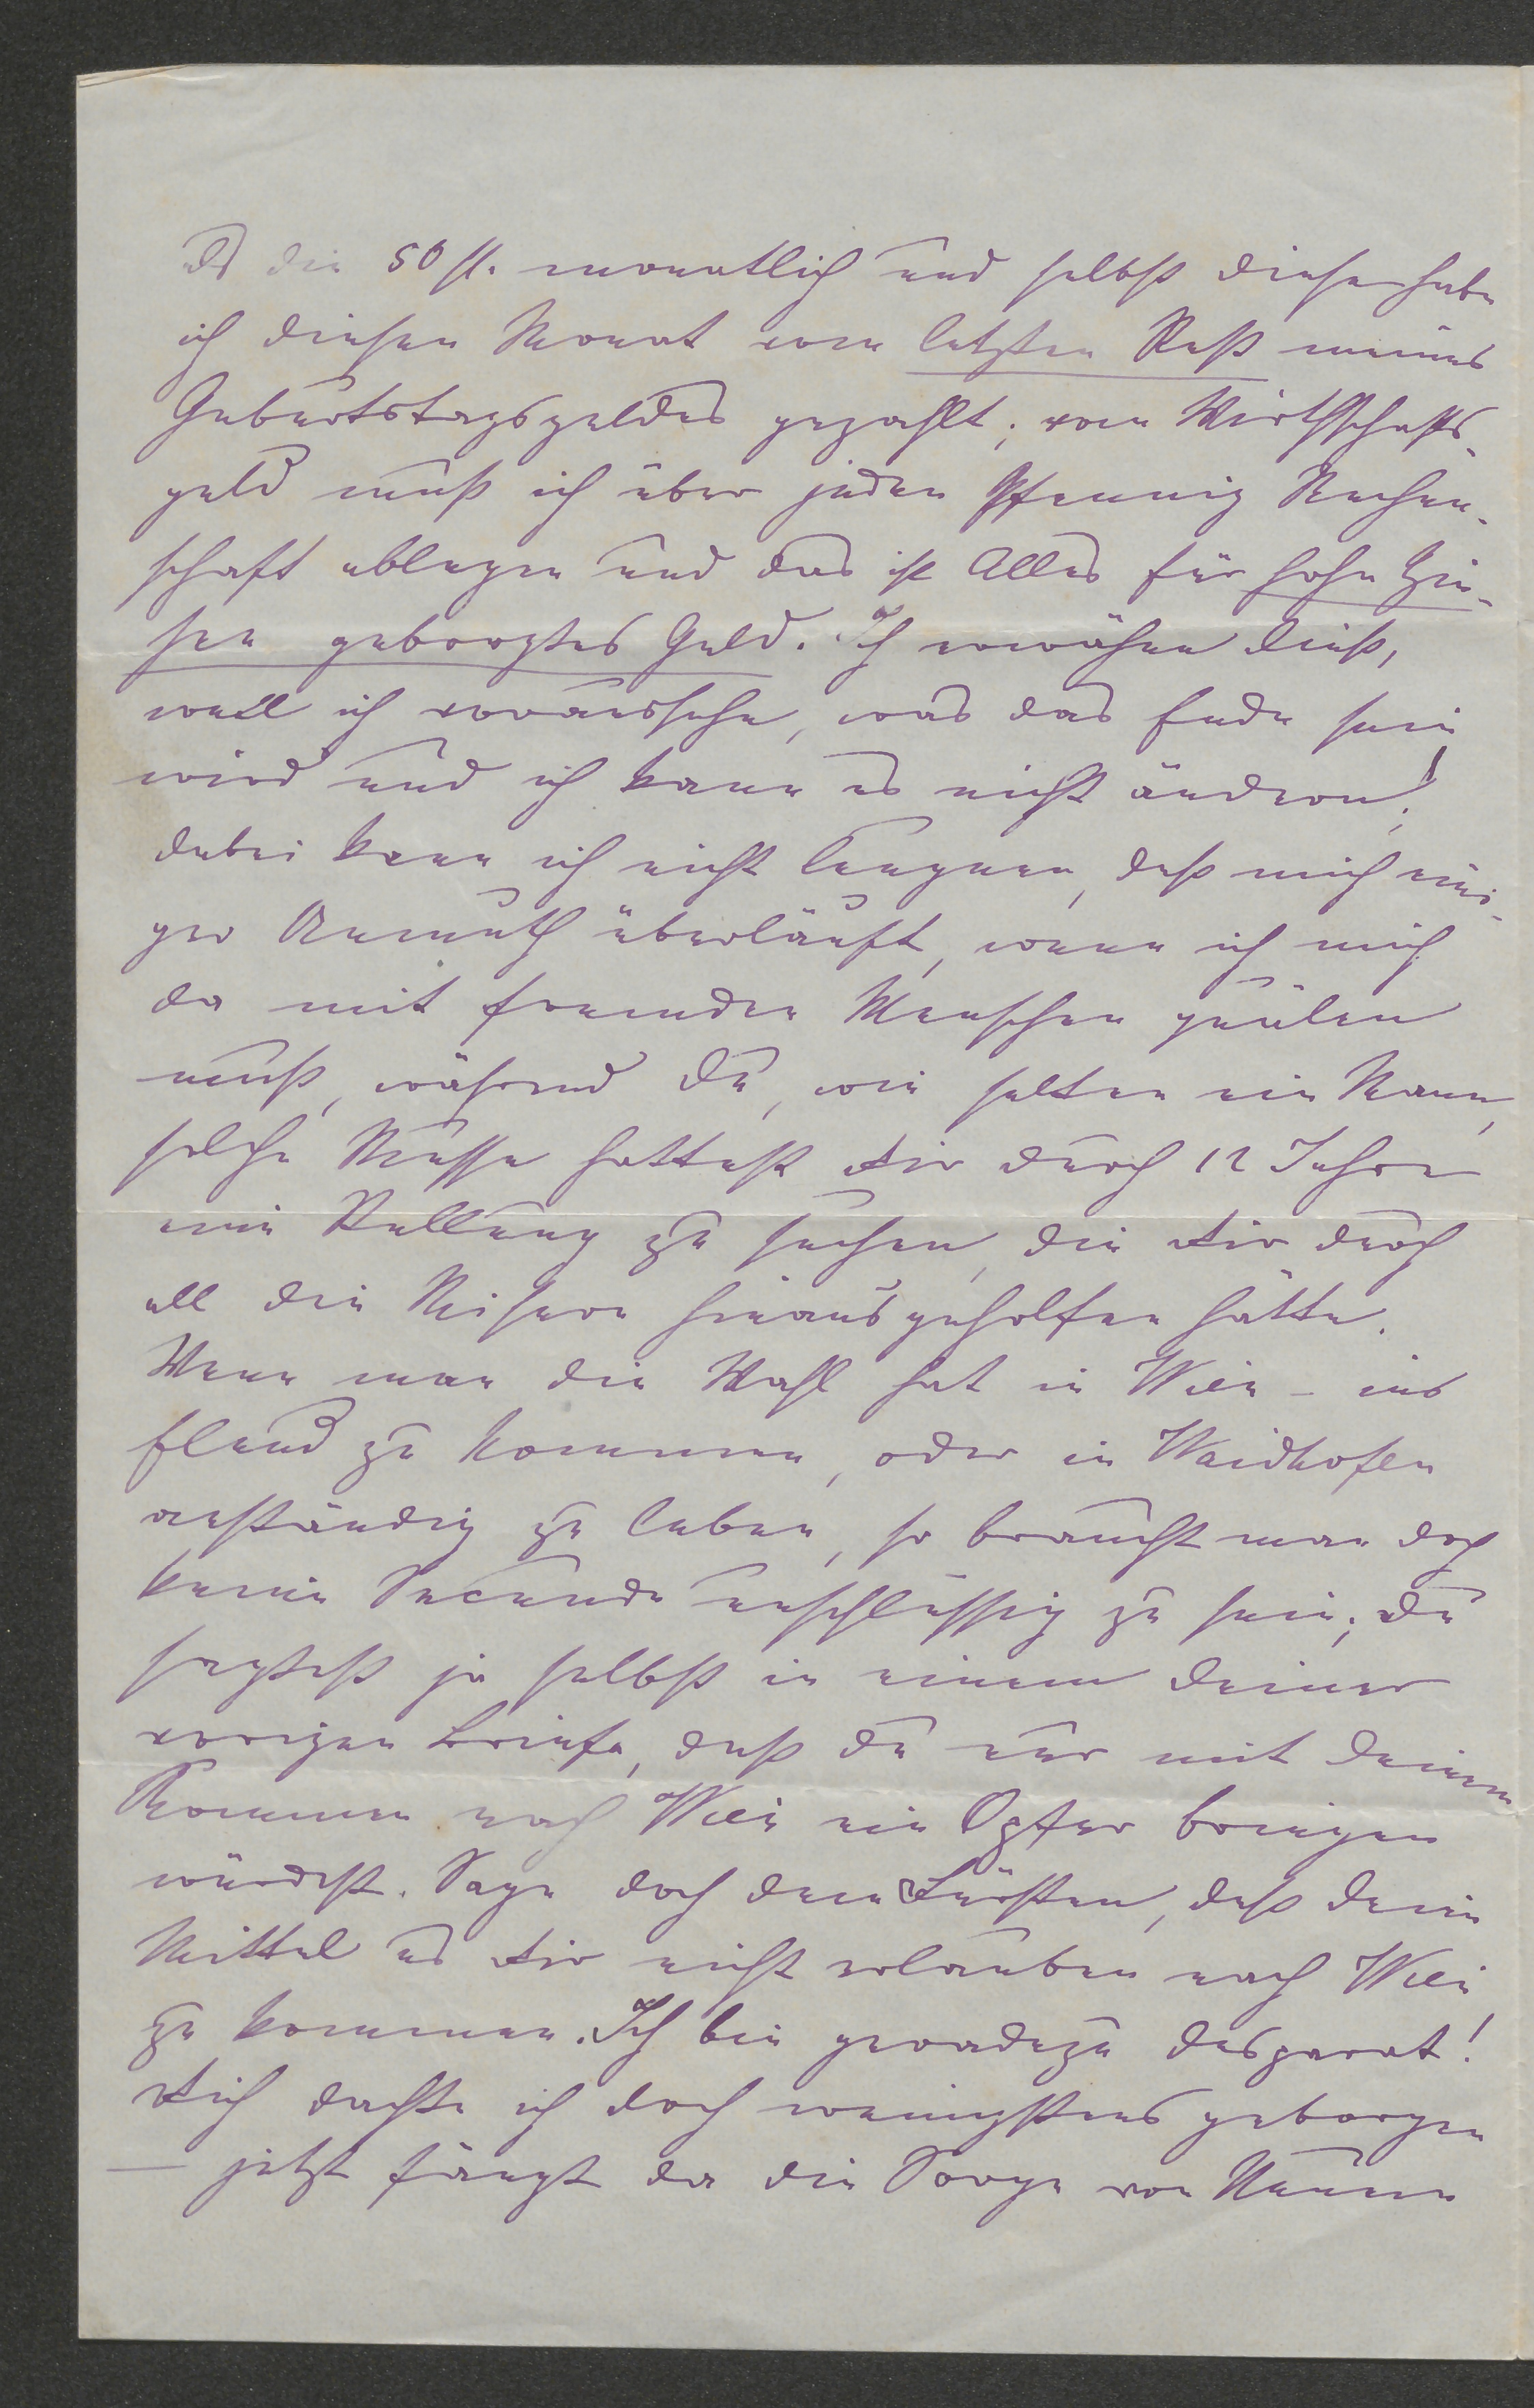 es die 50 fl. monatlich und selbst diese habe
ich diesen Monat vom letzten Rest meines
Geburtstagsgeldes gezahlt; vom Wirthschafts-
geld muß ich über jeden Pfennig Rechen-
schaft ablegen und das ist Alles für hohe Zin-
sen geborgtes Geld. Ich erwähne dieß,
weil ich voraussehe, was das Ende sein
wird und ich kann es nicht ändern!
dabei kann ich nicht leugnen, daß mich eini-
ger Unmuth überläuft, wenn ich mich
da mit fremden Menschen quälen
muß, während Du, wie selten ein Mann,
solche Musse hattest Dir durch 12 Jahre
eine Stellung zu suchen, die Dir durch
all die Misere hinausgeholfen hätte.
Wenn man die Wahl hat in Wien – ins
Elend zu kommen, oder in Waidhofen
anständig zu leben, so braucht man doch
keine Secunde unschlüssig zu sein; Du
sagtest ja selbst in einem Deiner
vorigen Briefe, daß Du nur mit Deinem
Kommen nach Wien ein Opfer bringen
würdest. Sage doch dem Fürsten, daß Deine
Mittel es Dir nicht erlauben nach Wien
zu kommen. Ich bin geradezu desparat!
Dich dachte ich doch wenigstens geborgen
— jetzt fängt da die Sorge von Neuem